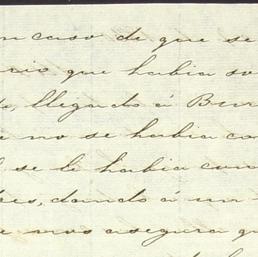 n caso de que se
cio que habia so
do, llegado á Bur
e no se habia co
se le habia con
tres, dando á un
e nos asegura q